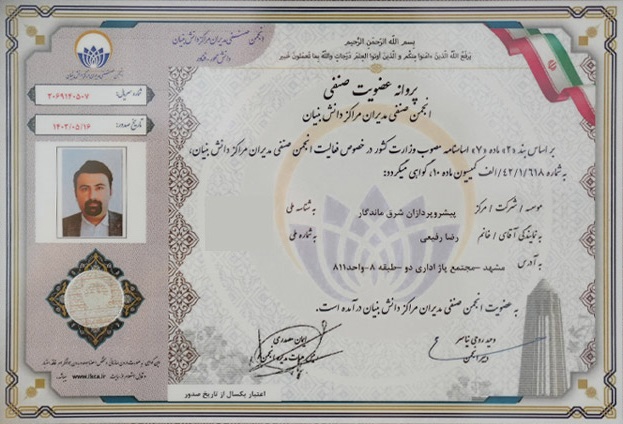 بسم الله الرحمن الرحیم
یرفع الله الذین ءامنوا منکم و الذین أوتوا العلم درجات والله بما تعملون خبیر
انجمن صنفی مدیران مراکز دانش بنیان
پروانه عضویت صنفی
انجمن صنفی مدیران مراکز دانش بنیان
شماره سریال:
تاریخ صدور: ۱۴۰۲/۰۵/۱۶
بر اساس بند «۲» ماده «۷» اساسنامه مصوب وزارت کشور در خصوص فعالیت انجمن صنفی مدیران مراکز دانش بنیان،
به شماره ۴۲/۱/۶۱۸/الف کمیسیون ماده ۱۰، گواهی میگردد:
موسسه / شرکت / مرکز پیشروپردازان شرق ماندگار به شناسه ملی
به نمایندگی آقای / خانم رضا رفیعی به شماره ملی
به آدرس مشهد -مجتمع پاژ اداری دو -طبقه ۸-واحد۸۱۱
به عضویت انجمن صنفی مدیران مراکز دانش بنیان درآمده است.
دبیر انجمن
اعتبار یکسال از تاریخ صدور